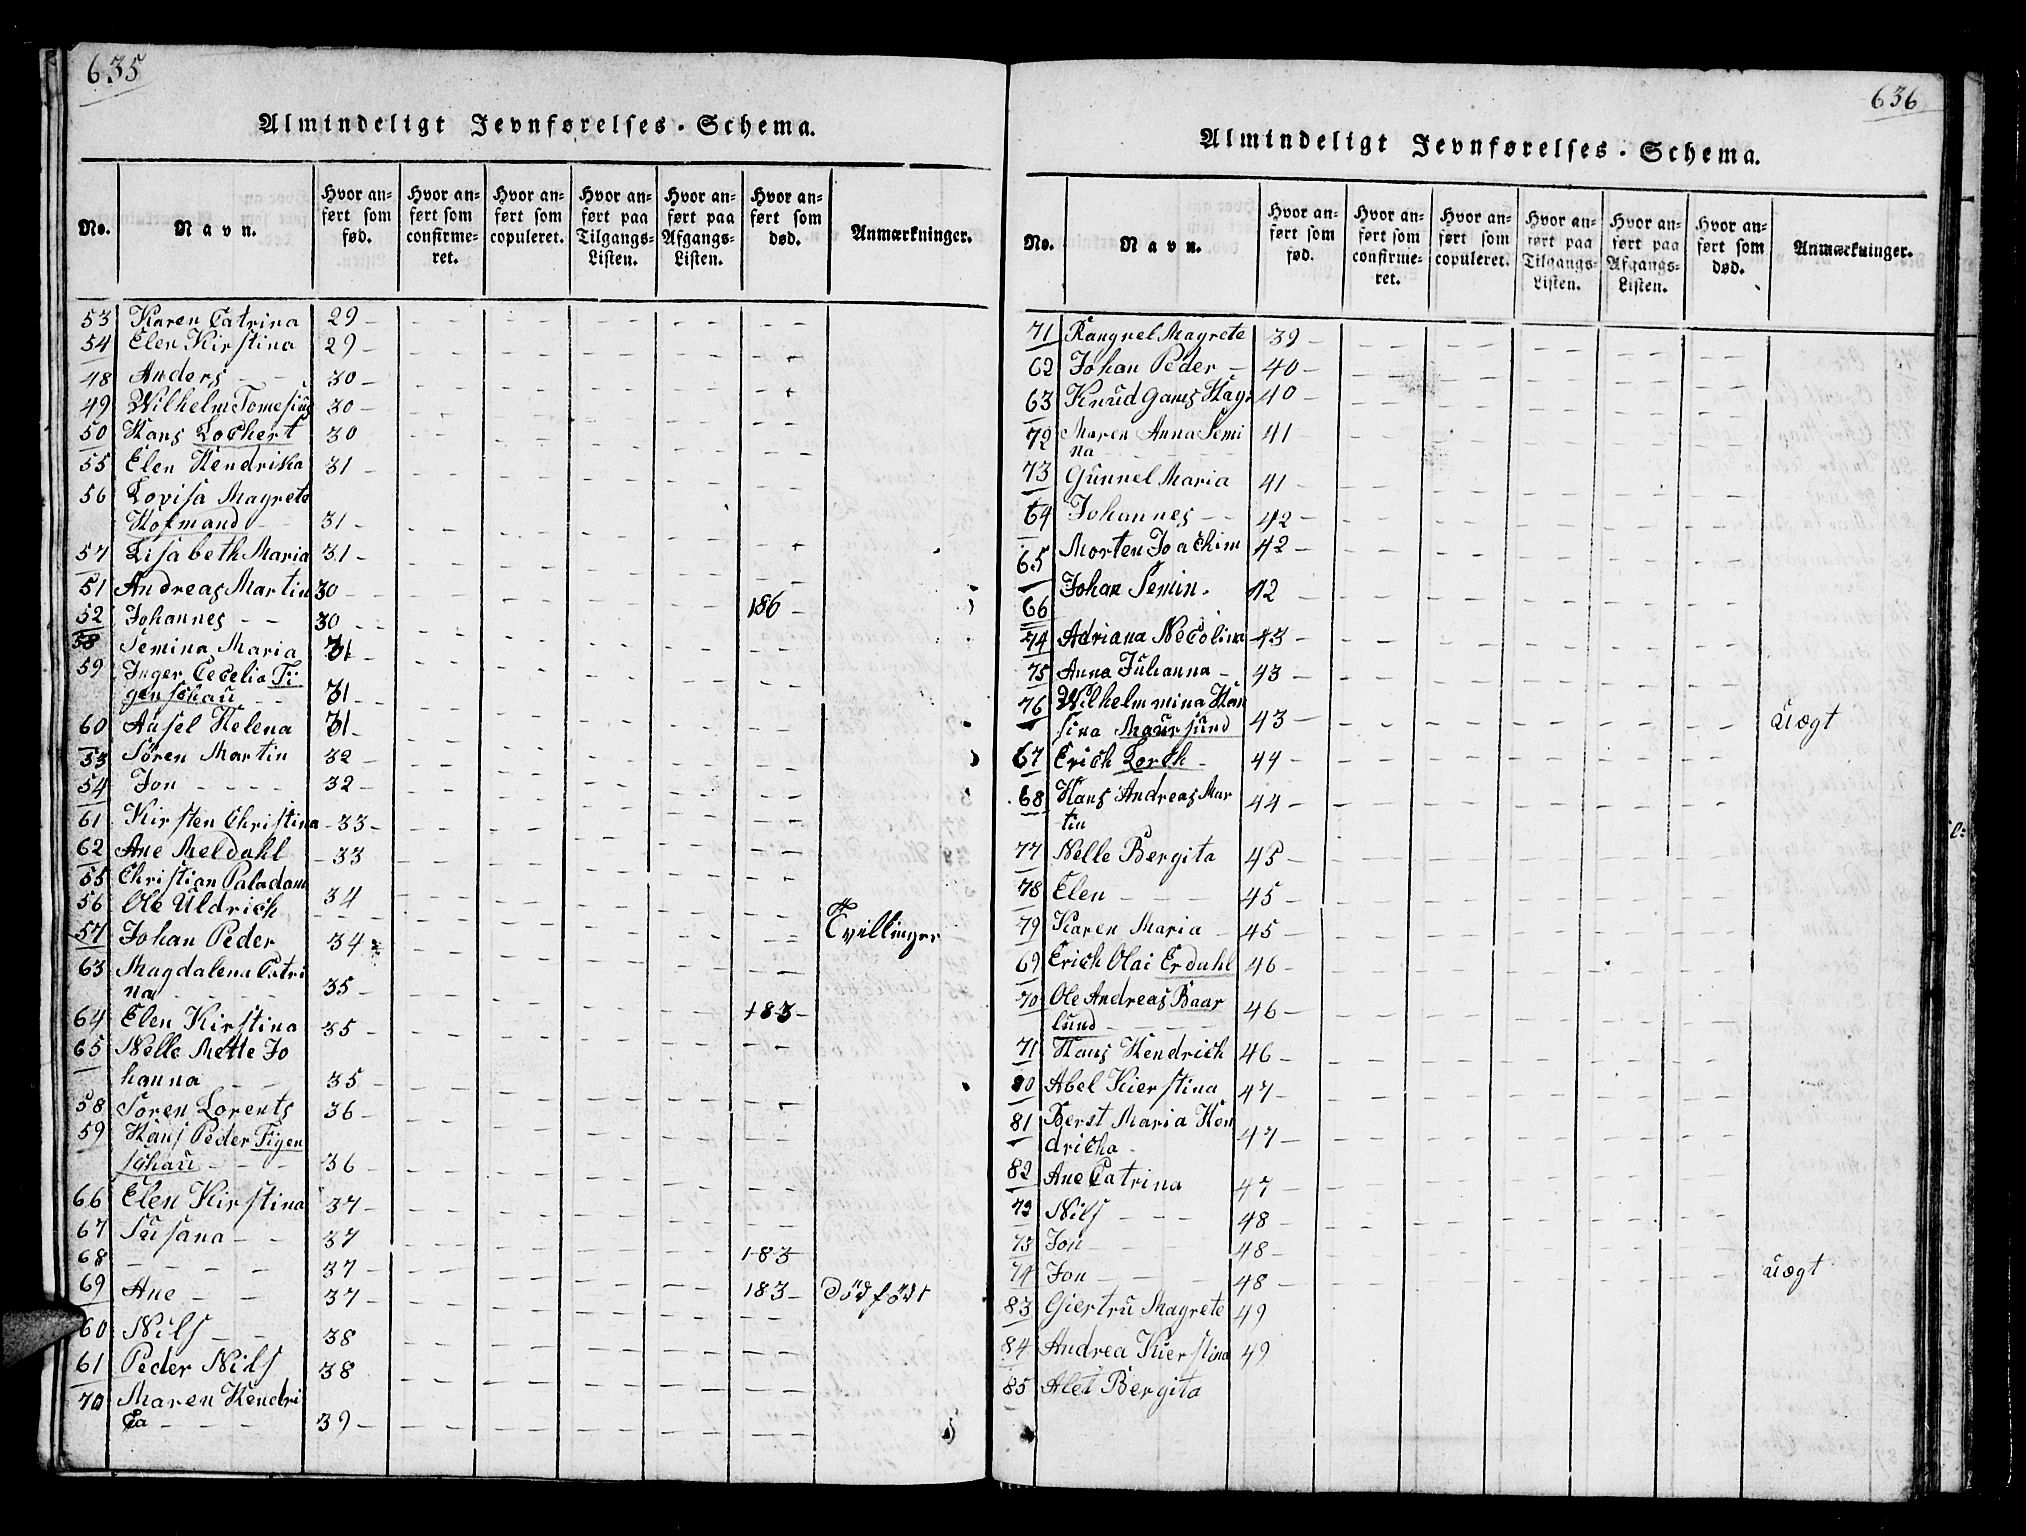 635
Almindeligt Jevnførelses-Schema.
No. Navn. Hvor anført som fød. Hvor anført som confirmeret. Hvor anført som copuleret. Hvor anført paa Tilgangs-Listen. Hvor anført paa Afgangs-Listen. Hvor anført som død. Anmærkninger.
53 Karen Catrina 29 -
54 Elen Kirstina 29 -
48 Anders 30 -
49 Wilhelm Tomesius 30 -
50 Hans Lochert 30
55 Elen Hendrika 31 -
56 Lovisa Magrete
Hofmand 31 -
57 Lisabeth Maria 31 -
51 Andreas Martin 30 - 186 -
52 Johannes - - 30 -
58 Semina Maria 31 -
59 Inger Cecelia Fi
genschau 31 -
60 Aasel Helena 31 -
53 Sören Martin 32 -
54 Jon - - - - 32 -
61 Kirsten Christina - 33 -
62 Ane Meldahl - 33
55 Christian Paladam
56 Ole Uldrich 34
57 Johan Peder 34 Tvillinger
63 Magdalena Catri
na 35 -
64 Elen Kirstina 35 - 183 -
65 Nelle Mette Jo
hanna 35 -
58 Sören Lorents 36 -
59 Hans Peder Figen
schau 36 -
66 Elen Kirstina 37 -
67 Susana - - 37
68 - - - - 37 - 183
69 Ane - - 37 - 183 - Dödfödt
60 Nils - - 38
61 Peder Nils 38
70 Maren Hendri
ca - - - 39 -
636
Almindeligt Jevnførelses-Schema.
No. Navn. Hvor anført som fød. Hvor anført som confirmeret. Hvor anført som copuleret. Hvor anført paa Tilgangs-Listen. Hvor anført paa Afgangs-Listen. Hvor anført som død. Anmærkninger.
71 Rangnel Magrete 39 -
62 Johan Peder - 40 -
63 Knud Gams 40
72 Maren Anna Semi 41 -
na
73 Gunnel Maria 41 -
64 Johannes - - 42 -
65 Morten Joachim 42 -
66 Johan Semin. 42 -
74 Adriana Necolina 43 -
75 Anna Juhanna - 43 -
76 Wilhelmmina Han
sina Maursund 43 - Uægt
67 Erich Lorch - 44 -
68 Hans Andreas Mar 44 -
tin
77 Nelle Bergita 45 -
78 Elen - - - 45 -
79 Karen Maria - 45 -
69 Erich Olai Erdahl 46 -
70 Ole Andreas Baar
lund - - - - 46 -
71 Hans Hendrich 46 -
80 Abel Kierstina 47 -
81 Berst Maria Hen
dricha - 47 -
82 Ane Catrina 47 -
72 Nils - - - 48 -
73 Jon - - - 48 -
74 Jon - - - 48 - Uægt
83 Giertru Magrete 49
84 Andrea Kierstina 49
85 Alet Bergita